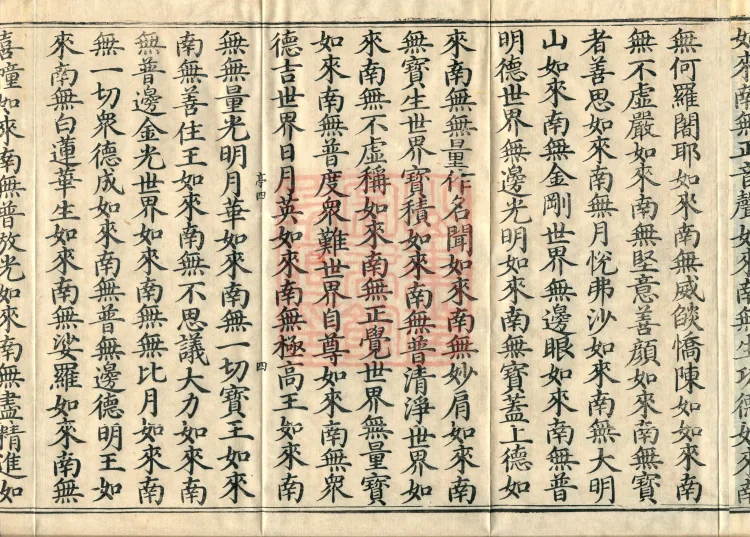 如來南無正音聲如來南無生功德如來
無何羅闍耶如來南無威燄憍陳如如來南
無不虛嚴如來南無堅意善顏如來南無寶
者善思如來南無月悅弗沙如來南無大明
山如來南無金剛世界無邊眼如來南無普
明德世界無邊光明如來南無寶蓋上德如
來南無無量作名聞如來南無妙肩如來南
無寶生世界寶積如來南無普清淨世界如
來南無不虛稱如來南無正覺世界無量寶
如來南無普度衆難世界自尊如來南無衆
德吉世界日月英如來南無極高王如來南
亭四 四
無無量光明月華如來南無一切寶王如來
南無善住王如來南無不思議大力如來南
無普邊金光世界如來南無無比月如來南
無一切衆德成如來南無普無邊德明王如
來南無白蓮華生如來南無娑羅如來南無
喜瞳如來南無普放光如來南無盡精進如